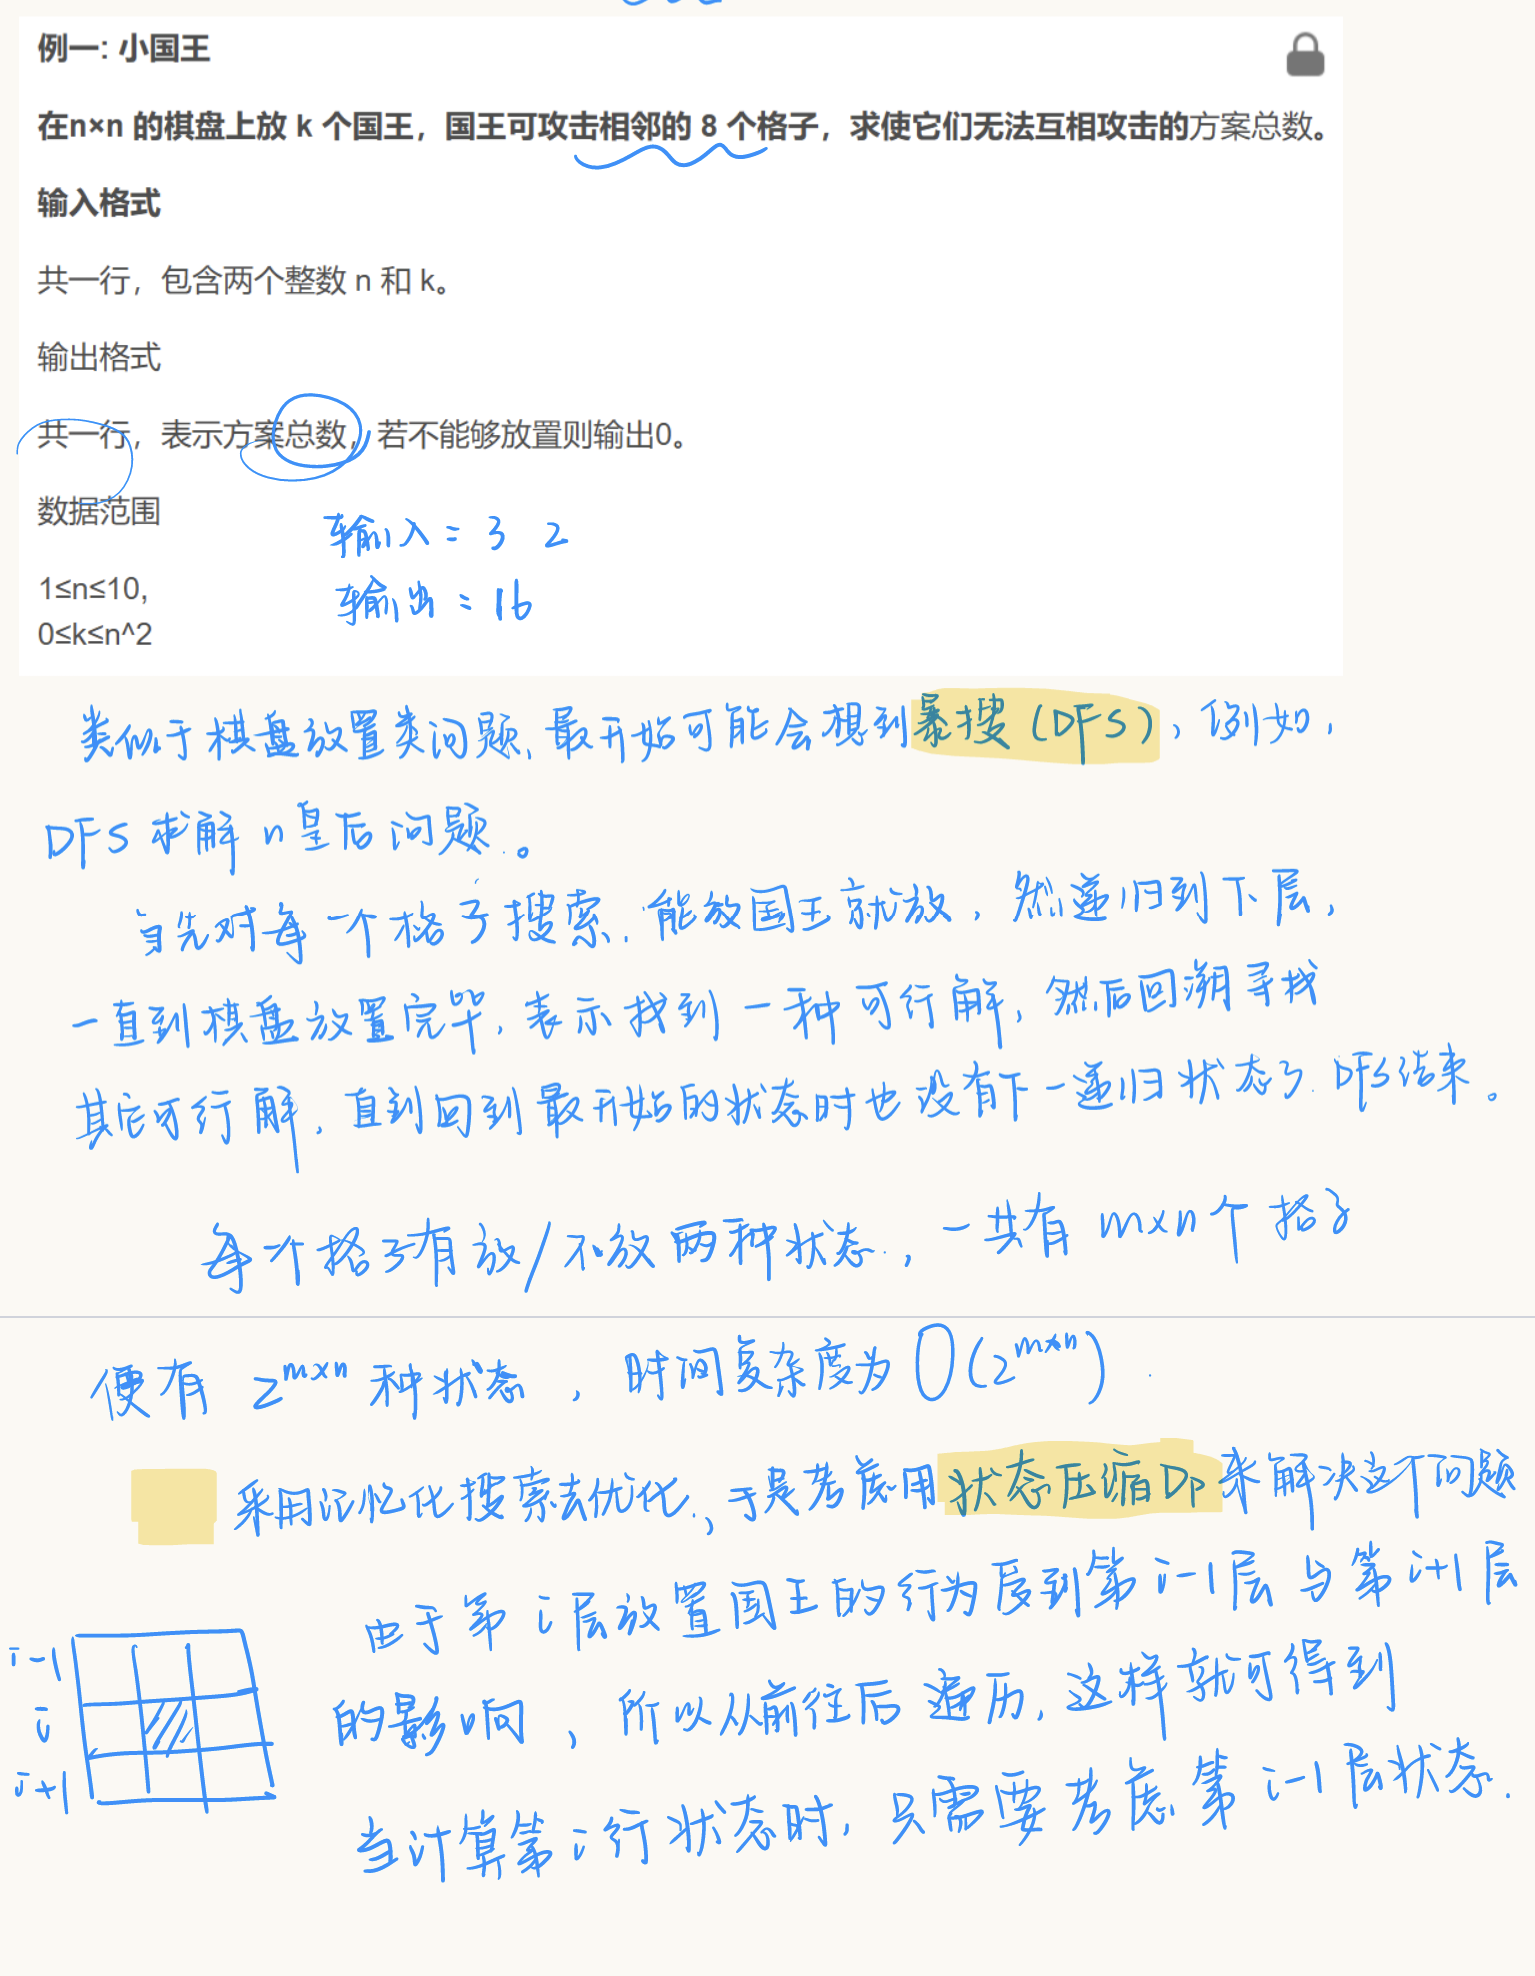 例一: 小国王
在n×n 的棋盘上放 k 个国王，国王可攻击相邻的 8 个格子，求使它们无法互相攻击的方案总数。
输入格式
共一行，包含两个整数 n 和 k。
输出格式
共一行，表示方案总数，若不能够放置则输出0。
数据范围
输入= 3 2
1≤n≤10,
输出=16
0≤k≤n^2
类似于棋盘放置类问题,最开始可能会想到暴搜(DFS)，例如，
DFS求解n皇后问题。
首先对每一个格子搜索,能放国王就放，然递归到下层，
一直到棋盘放置完毕,表示找到一种可行解,然后回溯寻找
其它可行解,直到回到最开始的状态时也没有下一递归状态了.DFS结束。
每个格子有放/不放两种状态,一共有 m×n个格子
便有 2^{m×n} 种状态，时间复杂度为 O(2^{m×n}).
采用记忆化搜索去优化,于是考虑用状态压缩DP来解决这个问题
由于第 i层放置国王的行为受到第 i-1层 与第 i+1层
i-1
的影响，所以从前往后遍历,这样就可得到
i
i+1
当计算第i行状态时,只需要考虑第i-1层状态.